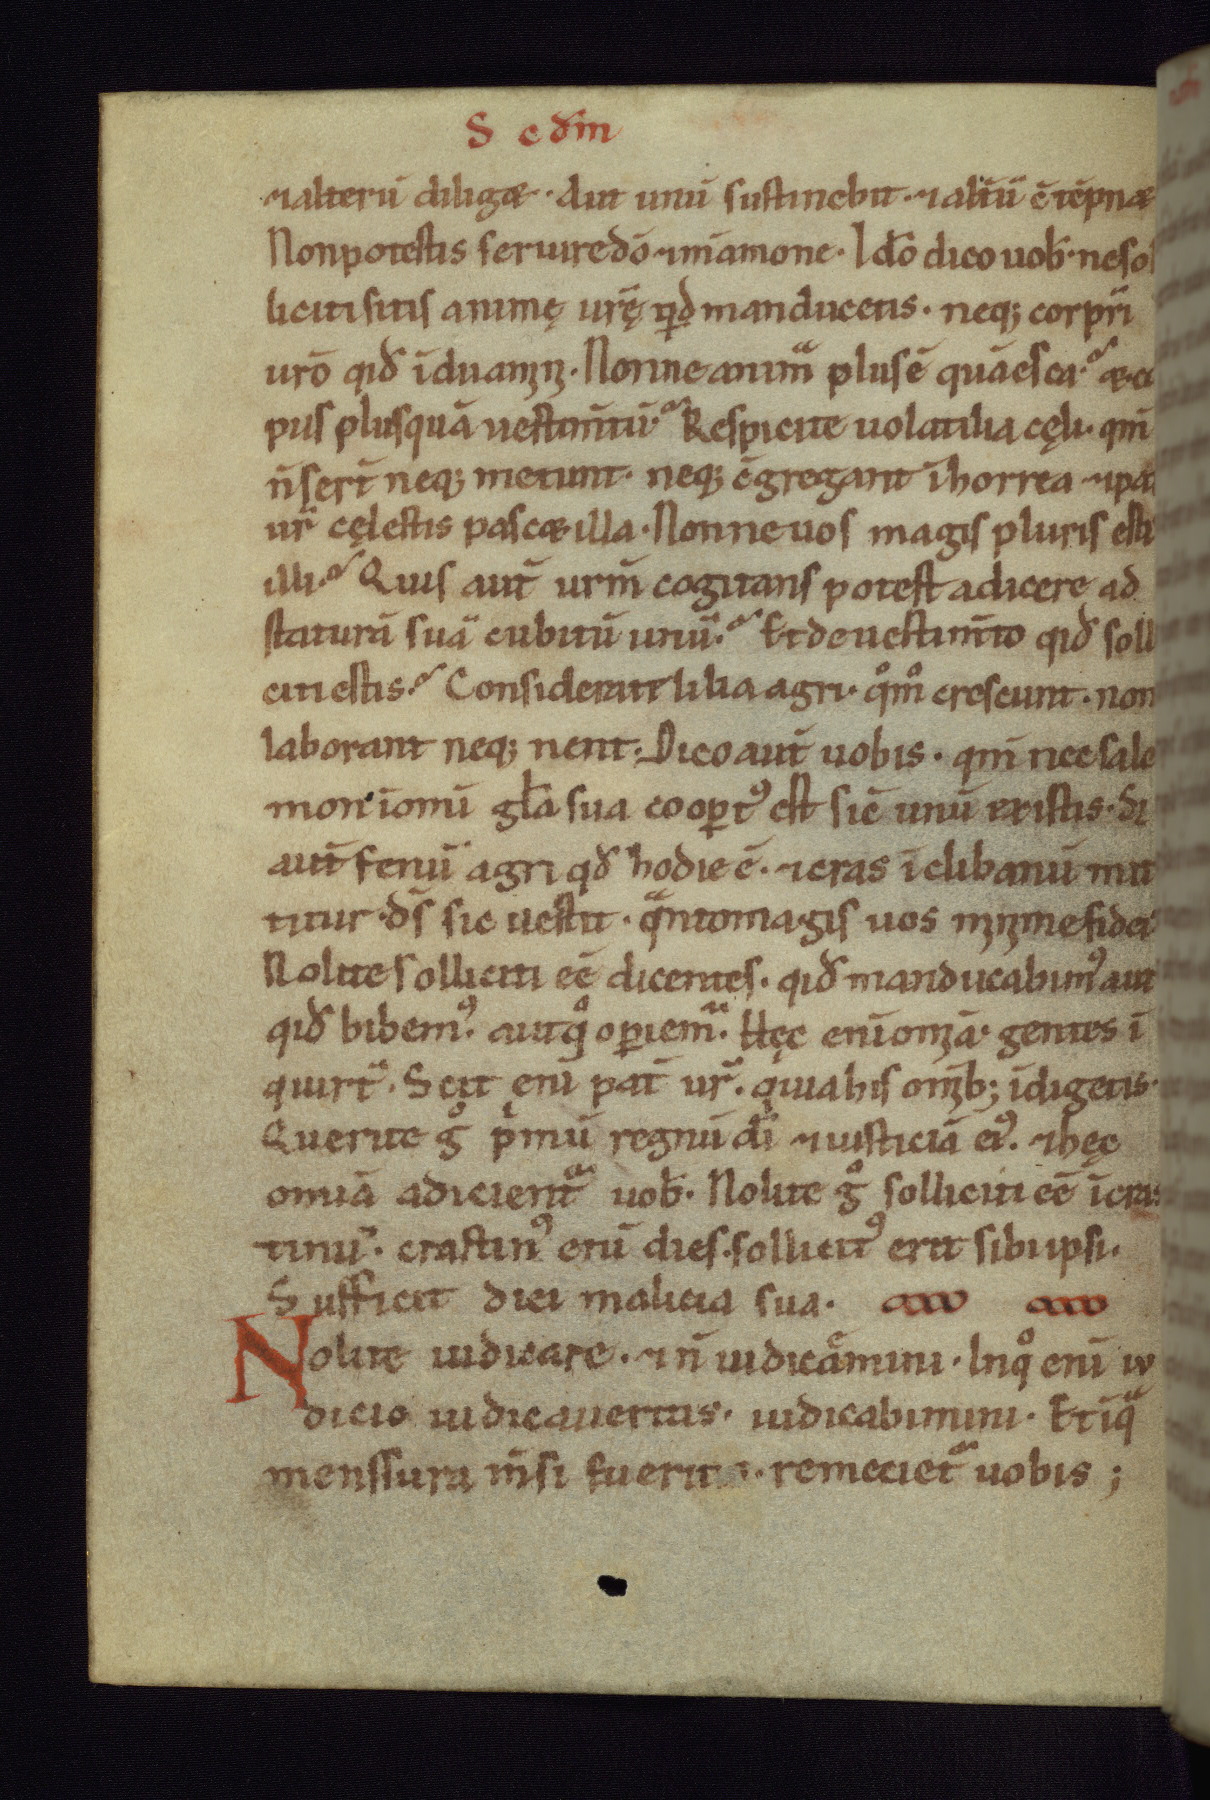 S c đm
⁊alterū diligæ · Aut unū sustinebit · ⁊alt̄ū c̄tēpnæ
Non potestis seruire dō ⁊māmone · Ido̅ dico uob̄ · ne sol
liciti sitis animę ur̄ę qid manducetis · neq; corpr̄i
ur̄o qid īduamini · Nonne anim̄a plus ē quā esca · æ co
pus plusquā uestim̄tū · Respicite uolatilia cęli · qm̄
n̄ ser̄t neq; metunt · neq; c̄gregant ī horrea ⁊pat
ur̄ cęlestis pascæ illa · Nonne uos magis pluris esti
illi · Quis aut̄ ur̄m cogitans potest adicere ad
staturā suā cubitū unū · Et de uestim̄to qid solli
citi estis · Considerate lilia agri · qͦmͦ crescunt · non
laborant neq; nent · Dico aut̄ uobis · qm̄ nec salo
mon īomi gl̄a sua coopt᷒ est sic̄ unū ex istis · Si
aut̄ fenū agri qđ hodie ē · ⁊cras ī clibanū mit
titur · d̄s sic uestit · qͣnto magis uos minime fidei
Nolite solliciti eē dicentes · qid manducabim᷒ aut
qid bibem᷒ · aut qͦ opiem̄ · Hęc eni omīa gentes ī
quir̄t · Scit eni pat̄ ur̄ · quia his omīb; īdigetis ·
Querite gͦ pͥmū regnū dī ⁊iusticiā ei᷒ · ⁊hęc
omīa adicient̄ uob̄ · Nolite gͦ solliciti eē ī cras
tinū · crastin᷒ enī dies · sollicit᷒ erit sibi ipsi ·
Sufficit diei malicia sua ·
Nolite iudicare · ⁊ n̄ iudicamini · In qͦ enī iu
dicio iudicaueritis · iudicabimini · Et ī qͣ
menssura m̄si fueritis · remeciet̄ uobis ;